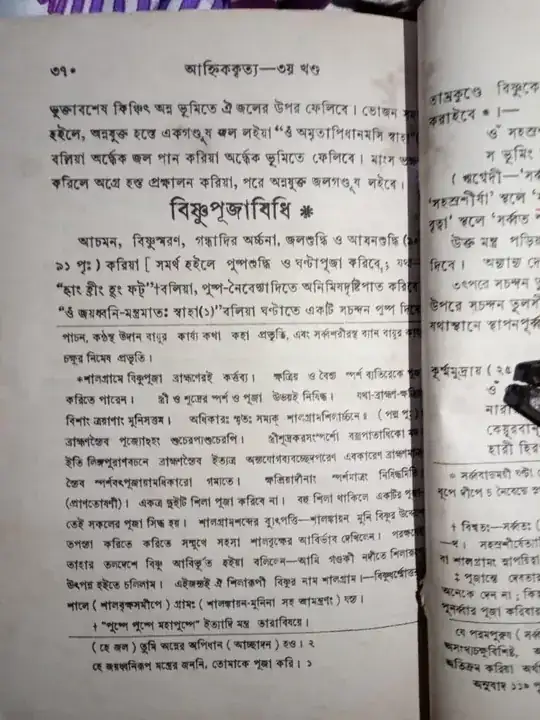 ৩৭০
আহ্নিককৃত্য—৩য় খণ্ড
ভুক্তাবশেষ কিঞ্চিৎ অন্ন ভূমিতে ঐ জলের উপর ফেলিবে। ভোজন
হইলে, অন্নযুক্ত হস্তে একগণ্ডূষ জল লইয়া “ওঁ অমৃতাপিধানমসি স্বাহা”
বলিয়া অর্দ্ধেক জল পান করিয়া অর্দ্ধেক ভূমিতে ফেলিবে। মাংস
করিলে অগ্রে হস্ত প্রক্ষালন করিয়া, পরে অন্নযুক্ত জলগণ্ডূষ লইবে।
বিষ্ণুপূজাবিধি *
আচমন, বিষ্ণুস্মরণ, গন্ধাদির অর্চ্চনা, জলশুদ্ধি ও আসনশুদ্ধি
৯১ পৃঃ) করিয়া [ সমর্থ হইলে পুষ্পশুদ্ধি ও ঘণ্টাপূজা করিবে, যথা—
বলিয়া, পুষ্প-নৈবেদ্যাদিতে অনিমিষদৃষ্টিপাত করিবে
“ওঁ জয়ধ্বনি-মন্ত্রমাতঃ স্বাহা(১)” বলিয়া ঘণ্টাতে একটি সচন্দন পুষ্প দিবে
পাচন, কণ্ঠস্থ উদান বায়ুর কার্য্য কথা কহা প্রভৃতি, এবং সর্ব্বশরীরস্থ ব্যান বায়ুর কার্য্য
চক্ষুর নিমেষ প্রভৃতি।
*শালগ্রামে বিষ্ণুপূজা ব্রাহ্মণেরই কর্ত্তব্য। ক্ষত্রিয় ও বৈশ্য স্পর্শ ব্যতিরেকে
করিতে পারেন। স্ত্রী ও শূদ্রের স্পর্শ ও পূজা উভয়ই নিষিদ্ধ। যথা-ব্রাহ্মণ-ক্ষত্রিয়
বিশাং ত্রয়াণাং মুনিসত্তম। অধিকারঃ স্মৃতঃ সম্যক্ শালগ্রামশিলার্চ্চনে॥ ( পদ্ম পুঃ )
ব্রাহ্মণস্যৈব পূজ্যোঽহং শুচেরপ্যশুচেরপি। স্ত্রীশূদ্রকরসংস্পর্শো বজ্রপাতাধিকো মম
ইতি লিঙ্গপুরাণবচনে ব্রাহ্মণস্যৈব ইত্যত্র অন্যযোগব্যবচ্ছেদপরেণ এবকারেণ
স্যৈব স্পর্শবৎপূজায়ামধিকারো গম্যতে। ক্ষত্রিয়াদীনাং স্পর্শমাত্রং নিষিদ্ধমিতি
(প্রাণতোষণী)। একত্র দুইটি শিলা পূজা করিবে না। বহু শিলা থাকিলে একটির পূজা
তেই সকলের পূজা সিদ্ধ হয়। শালগ্রামশব্দের ব্যুৎপত্তি—শালঙ্কায়ন মুনি বিষ্ণুর উদ্দেশে
তপস্যা করিতে করিতে সম্মুখে সহসা শালবৃক্ষের আবির্ভাব দেখিলেন। পরক্ষণে
তাহার তলদেশে বিষ্ণু আবির্ভূত হইয়া বলিলেন—আমি গণ্ডকী নদীতে শিলারূপে
উৎপন্ন হইতে চলিলাম। এইজন্যই ঐ শিলারূপী বিষ্ণুর নাম শালগ্রাম।
শালে ( শালবৃক্ষসমীপে ) গ্রামঃ ( শালঙ্কায়ন-মুনিনা সহ আমন্ত্রণং ) যস্য।
† “পুষ্পে পুষ্পে মহাপুষ্পে” ইত্যাদি মন্ত্র তারাবিষয়ে।
( হে জল ) তুমি অন্নের অপিধান ( আচ্ছাদন ) হও। ২
হে জয়ধ্বনিরূপ মন্ত্রের জননি, তোমাকে পূজা করি। ১
তাম্রকুণ্ডে বিষ্ণুকে
করাইবে * ।—
ওঁ সহস্র
স ভূমিং
( ঋগ্বেদী—‘সর্ব
‘সহস্রশীর্ষা’ স্থলে
বৃত্বা’ স্থলে ‘সর্ব্বত
উক্ত মন্ত্র পড়িয়া
দিবে। অন্যান্য
তৎপরে সচন্দন
উপরে সচন্দন তুলসী
যথাস্থানে স্থাপনপূর্ব্ব
কূর্ম্মমুদ্রায় ( ২৫
ওঁ
নারা
কেয়ূরবান্
হারী হির
† বিশ্বতঃ—সর্ব্বতঃ
বা শালগ্রামং স্থাপয়িত্বা
‡ পূজান্তে দেবতার
অনেকে দেন না;
পুনর্ব্বার পূজা করিবার
যে পরমপুরুষ
অতিক্রম করিয়া